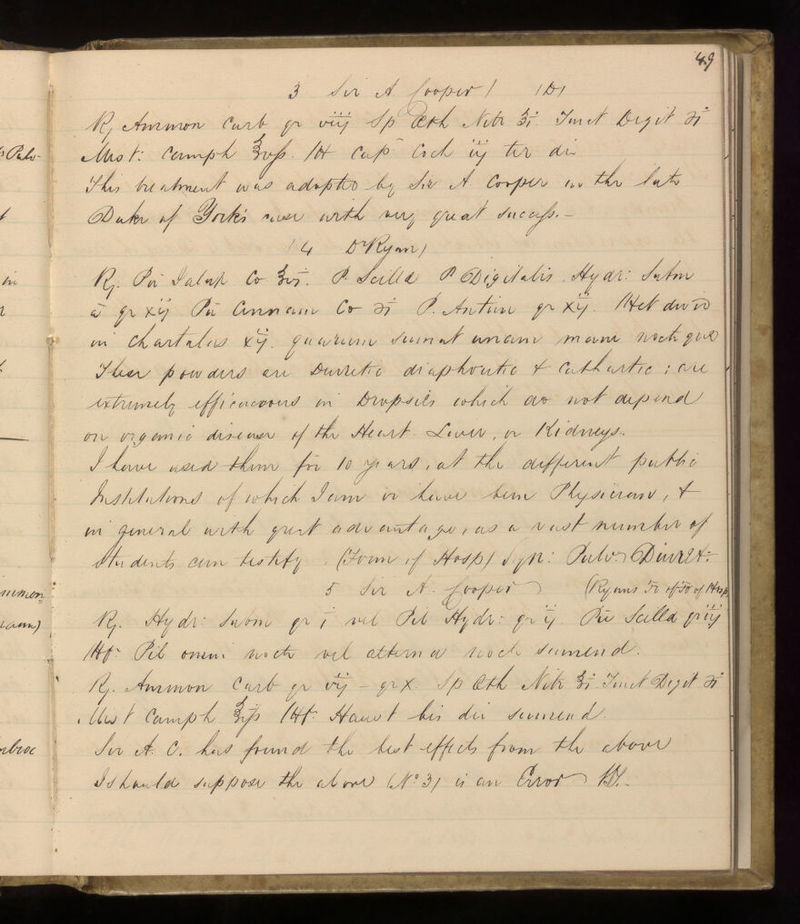 49
3 Sir A Cooper) (D)
Rx Ammon Carb gr viij Sp Æth Nitr ʒi Tinct Digit ʒi
Mist: Camph ℥vſs. Ft cap Coch iij ter die
This treatment was adopted by Sir A Cooper in the late
Duke of York's case with very great success.—
(4 Dr Ryan)
Rx. Pu Jalap Co ʒvi. P. Scilla P. Digitalis. Hydr: Subm
a gr xij Pu Cinnam Co ʒi P. Antim gr xij. Ft divid
in Chartulas xij. quarum sumat unam mane nocteque
These powders are Diuretic diaphoretic & Cathartic; are
extremely efficacious in Dropsies which do not depend
on organic disease of the Heart Liver, or Kidneys.
I have used them for 10 years, at the different public
Institutions of which I am or have been Physician, &
in general with great advantage, as a vast number of
Students can testify. (Form of Hosp) Syn: Pulv Diuret:
5 Sir A. Cooper) (Ryans of Hosp
Rx. Hydr: Subm gr i vel Pil Hydr: gr ij. Pu Scilla gr iij
Ft. Pil omni nocte vel alterna nocte sumend.
Rx. Ammon Carb gr vij – gr x. Sp Æth Nitr ʒi Tinct Digit ʒi
Mist Camph ℥iſs Ft. Haust bis die sumend.
Sir A. C. has found the best effects from the above
I should suppose the above (No 3) is an Error